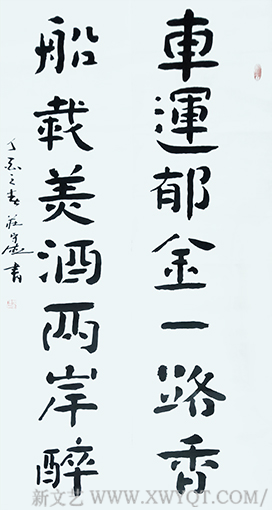 車運郁金一路香
船載美酒兩岸醉
之春 書
新文艺 WWW.XWYQT.COM/